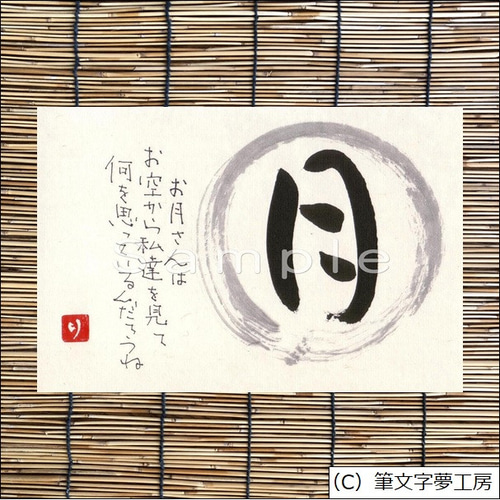 月
お月さんは
お空から私達を見て
何を思っているんだろうね
り
Sample
(C) 筆文字夢工房